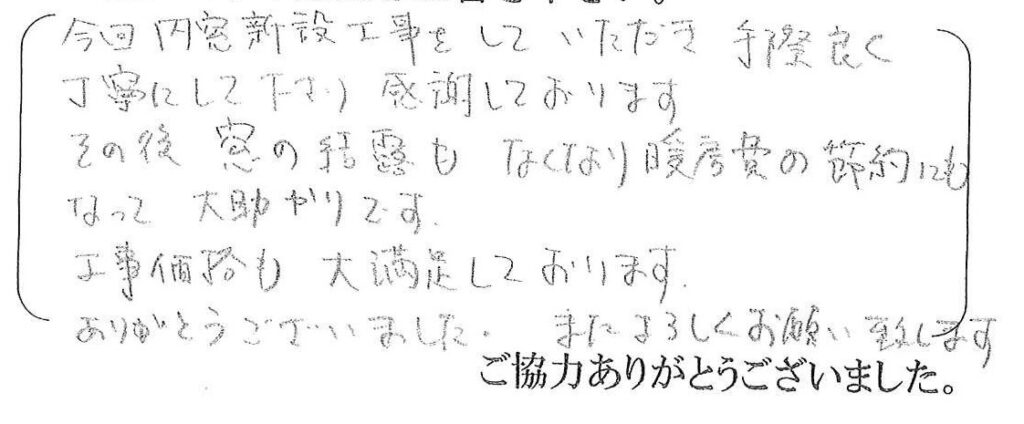 今回内窓新設工事をしていただき 手際良く
丁寧にして下さり 感謝しております
その後 窓の結露も なくなり暖房費の節約にも
なって 大助かりです.
工事価格も 大満足しております.
ありがとうございました. またよろしくお願い致します
ご協力ありがとうございました。